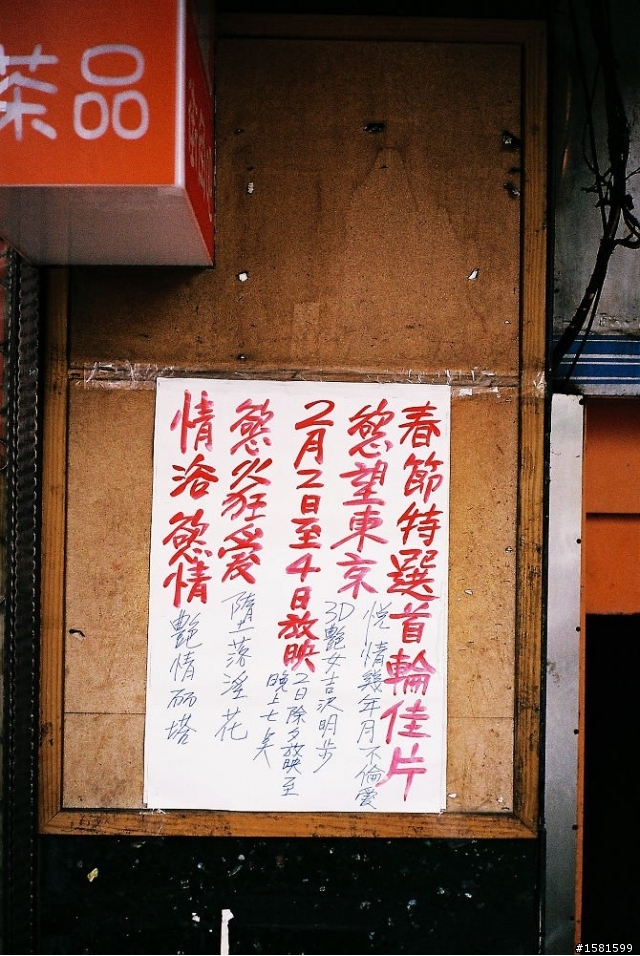 茶品
春節特選首輪佳片
慾望東京
悅情幾年月不倫愛
3D艷女吉沢明步
2月2日至4日放映
2日除夕放映至
晚上七矣
慾火狂愛
墮落淫花
情浴慾情
艷情砳塔
#1581599